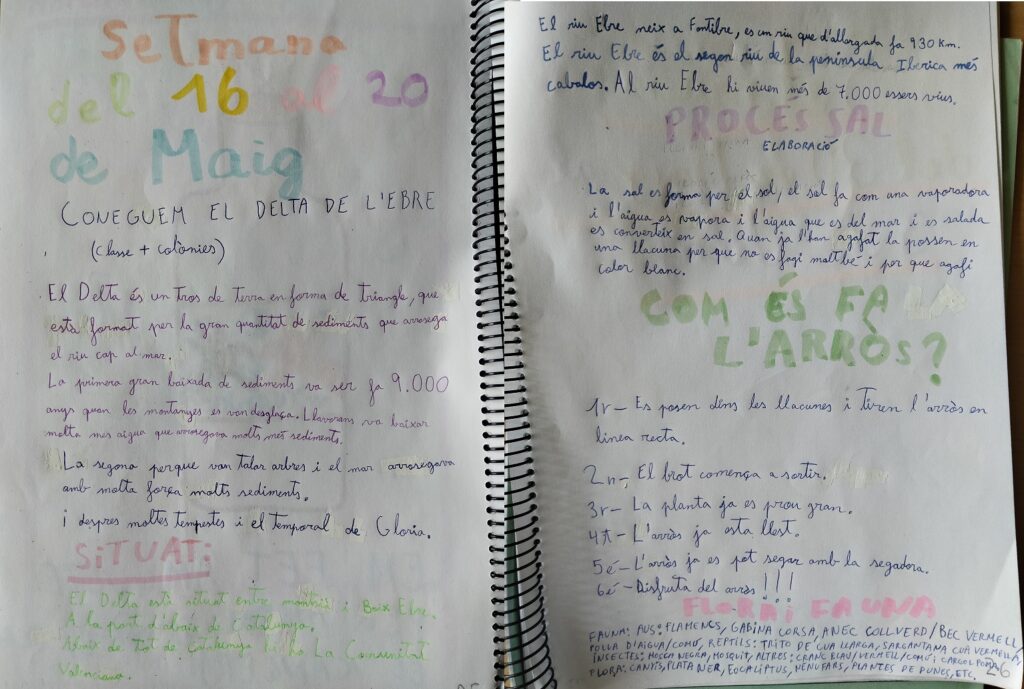 SeTmana
del 16 al 20
de Maig
CONEGUEM EL DELTA DE L'EBRE
(Classe + colònies)
El Delta és un tros de terra en forma de triangle, que
esta format per la gran quantitat de sediments que arrosega
el riu cap al mar.
La primera gran baixada de sediments va ser fa 9.000
anys quan les montanyes es van desglaça. Llavorans va baixar
molta mes aigua que arrosegava molts més sediments.
La segona perque van talar arbres i el mar arrosegava
amb molta força molts sediments.
i despres moltes tempestes i el temporal de Gloria.
SiTUATi:
El Delta està situat entre montsià i Baix Ebre.
A la part d'abaix de Catalunya.
Abaix de tot de Catalunya hi ha La Comunitat
Valenciana.
El riu Ebre neix a Fontibre, es un riu que d'allargada fa 930 km.
El riu Ebre és el segon riu de la península Iberica més
cabalos. Al riu Ebre hi viuen més de 7.000 essers vius.
PROCÉS SAL
ELABORACIÓ
La sal es forma per el sol, el sol fa com una vaporadora
i l'aigua es vapora i l'aigua que es del mar i es salada
es converteix en sal. Quan ja l'han agafat la possen en
una llacuna per que no es fagi malbé i per que agafi
color blanc.
COM ÉS FA
L'ARRÒS?
1r- Es posen dins les llacunes i tiren l'arròs en
linea recta.
2n- El brot comença a sortir.
3r- La planta ja es prou gran.
4t- L'arròs ja esta llest.
5é- L'arròs ja es pot segar amb la segadora.
6é- Disfruta del arròs!!!
FLORA i FAUNA
FAUNA: AUS: FLAMENCS, GABINA CORSA, ANEC COLLVERD/BEC VERMELL
POLLA D'AIGUA/COMÚ, REPTILS: TRITO DE CUA LLARGA, SARGANTANA CUA VERMELLA,
INSECTES: MOSCA NEGRA, MOSQUIT, ALTRES: CRANC BLAU/VERMELL/COMÚ i CARGOL POMA
FLORA: CANYIS, PLATANER, EOCALIPTUS, NENUFARS, PLANTES DE DUNES, ETC.
26